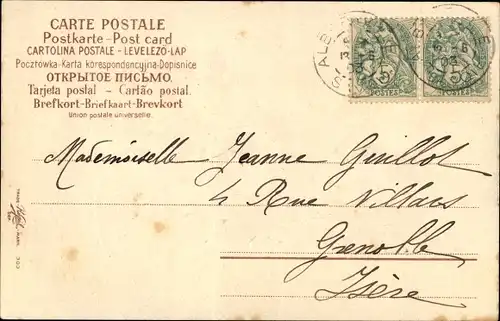 CARTE POSTALE
Postkarte - Post card
CARTOLINA POSTALE - LEVELEZŐ-LAP
Pocztówka - Karta korespondencyjna - Dopisnice
ОТКРЫТОЕ ПИСЬМО.
Tarjeta postal - Cartão postal.
Brefkort - Briefkaart - Brevkort
Union postale universelle.
5 5
POSTES POSTES
Mademoiselle Jeanne Guillot
4 Rue Villars
Grenoble
Isère
TRADE MARK
303